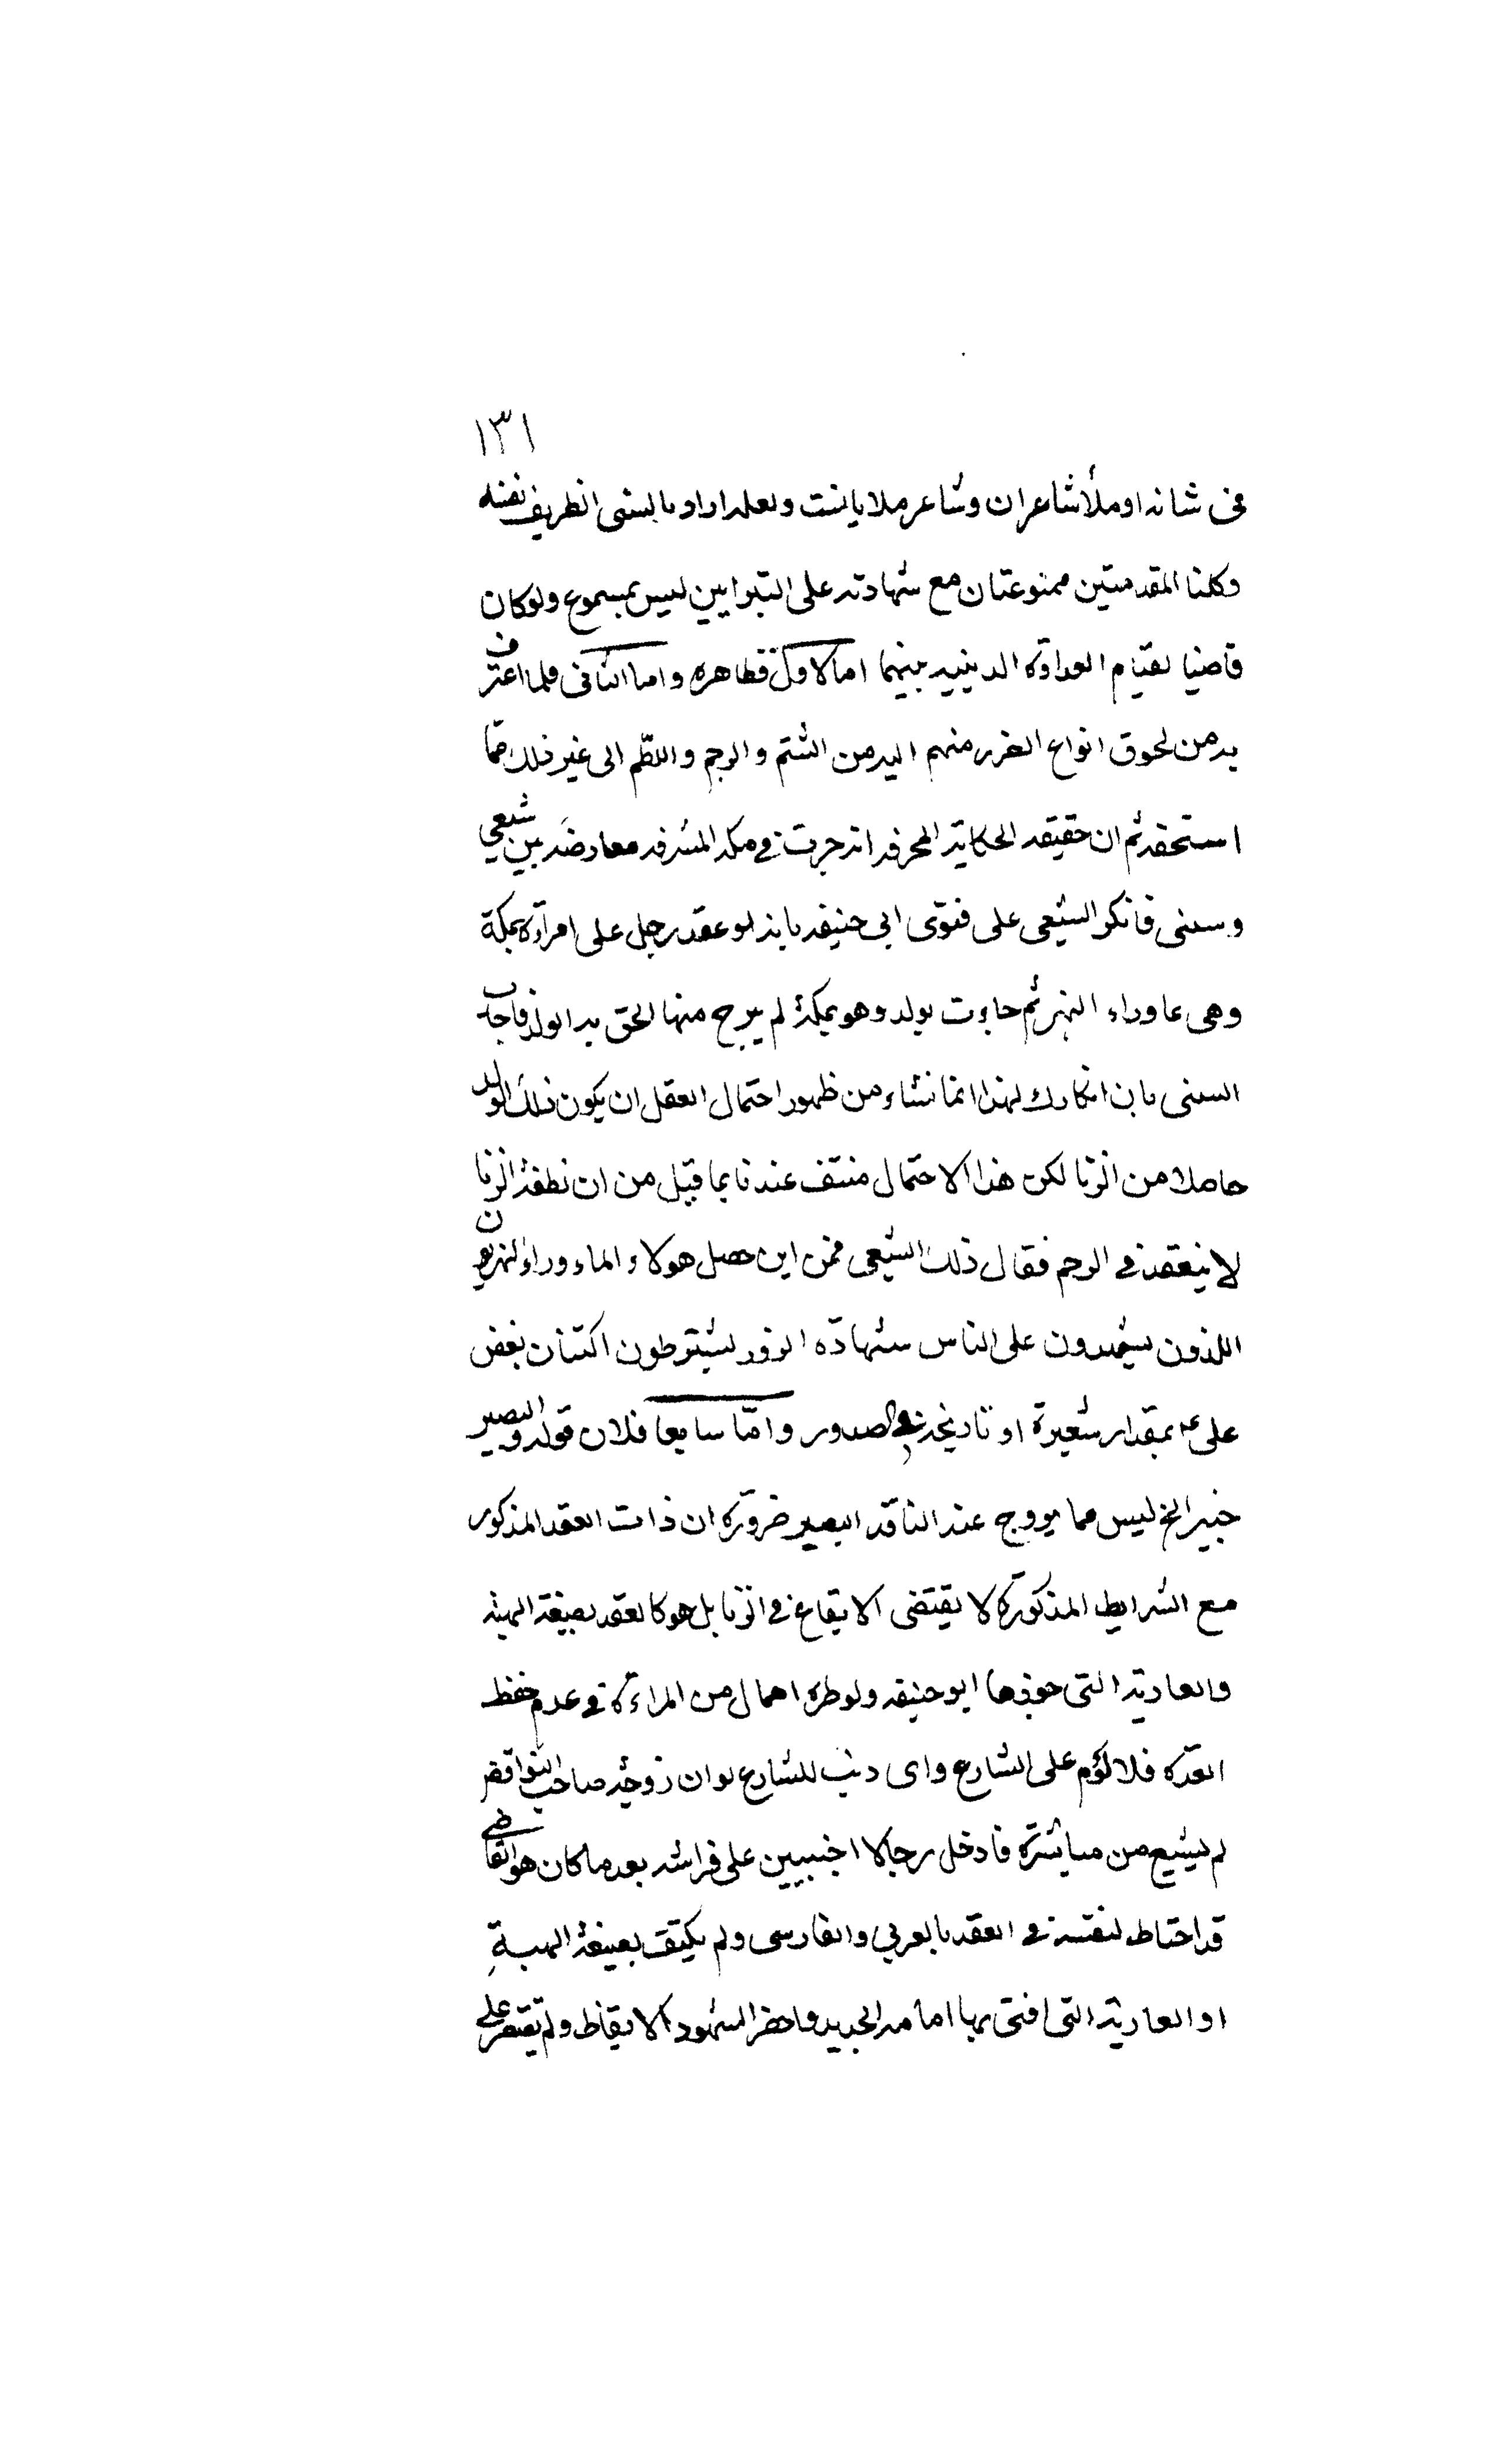 ١٣١
فى شانه او ملأ شاعران وشاعر ملايانست ولعله اراد بالسنى الظريف نفسه
وكلتا المقدمتين ممنوعتان مع شهادته على التبرايين ليس بمسموع ولو كان
قاضيا لقيام العداوة الدينيه بينهما اما الاول فظاهره واما الثانى فلما اعترف
به من لحوق انواع الضرر منهم اليه من الشتم والرجم واللطم الى غير ذلك مما
استحقه ثم ان حقيقه الحكاية المحرفه انه جرت فى مكه المشرفه معارضه بين شيعي
وسنى فانكر الشيعى على فتوى ابى حنيفه بانه لو عقد رجل على امرأة بمكة
وهى بماوراء النهر ثم جاءت بولد وهو بمكة لم يبرح منها الحق به الولد فاجاب
السنى بان انكارك لهذا انما نشاء من ظهور احتمال العقل ان يكون ذلك الولد
حاصلا من الزنا لكن هذا الاحتمال منتف عندنا بما قيل من ان نطفة الزنا
لا ينعقد فى الرحم فقال ذلك الشيعى فمن اين حصل هولاء الماء وراء النهريون
اللذون يشهدون على الناس شهادة الزور يشترطون اكتنان بغض
على ع بمقدار شعيرة او نارنجة فى الصدور واما سابعا فلان قوله والبصير
خبير الخ ليس مما يروج عند الناقد البصير ضرورة ان ذات العقد المذكور
مع الشرايط المذكورة لا يقتضى الايقاع فى الزنا بل هو كالعقد بصيغة الهبة
والعارية التى جوزها ابو حنيفه ولو طرء اهمال من المراءة فى عدم حفظ
العدة فلا لؤم على الشارع واى ذنب للشارع لو ان زوجة صاحب النواقض
لم يشبع من مباشرة فادخل رجالا اجنبيين على فراشه بعد ما كان هو القاضي
قد احتاط لنفسه فى العقد بالعربي والفارسى ولم يكتف بصيغة الهبة
او العارية التى افتى بها امامه الجديد واحضر الشهود الايقاظ ولم يقتصر على